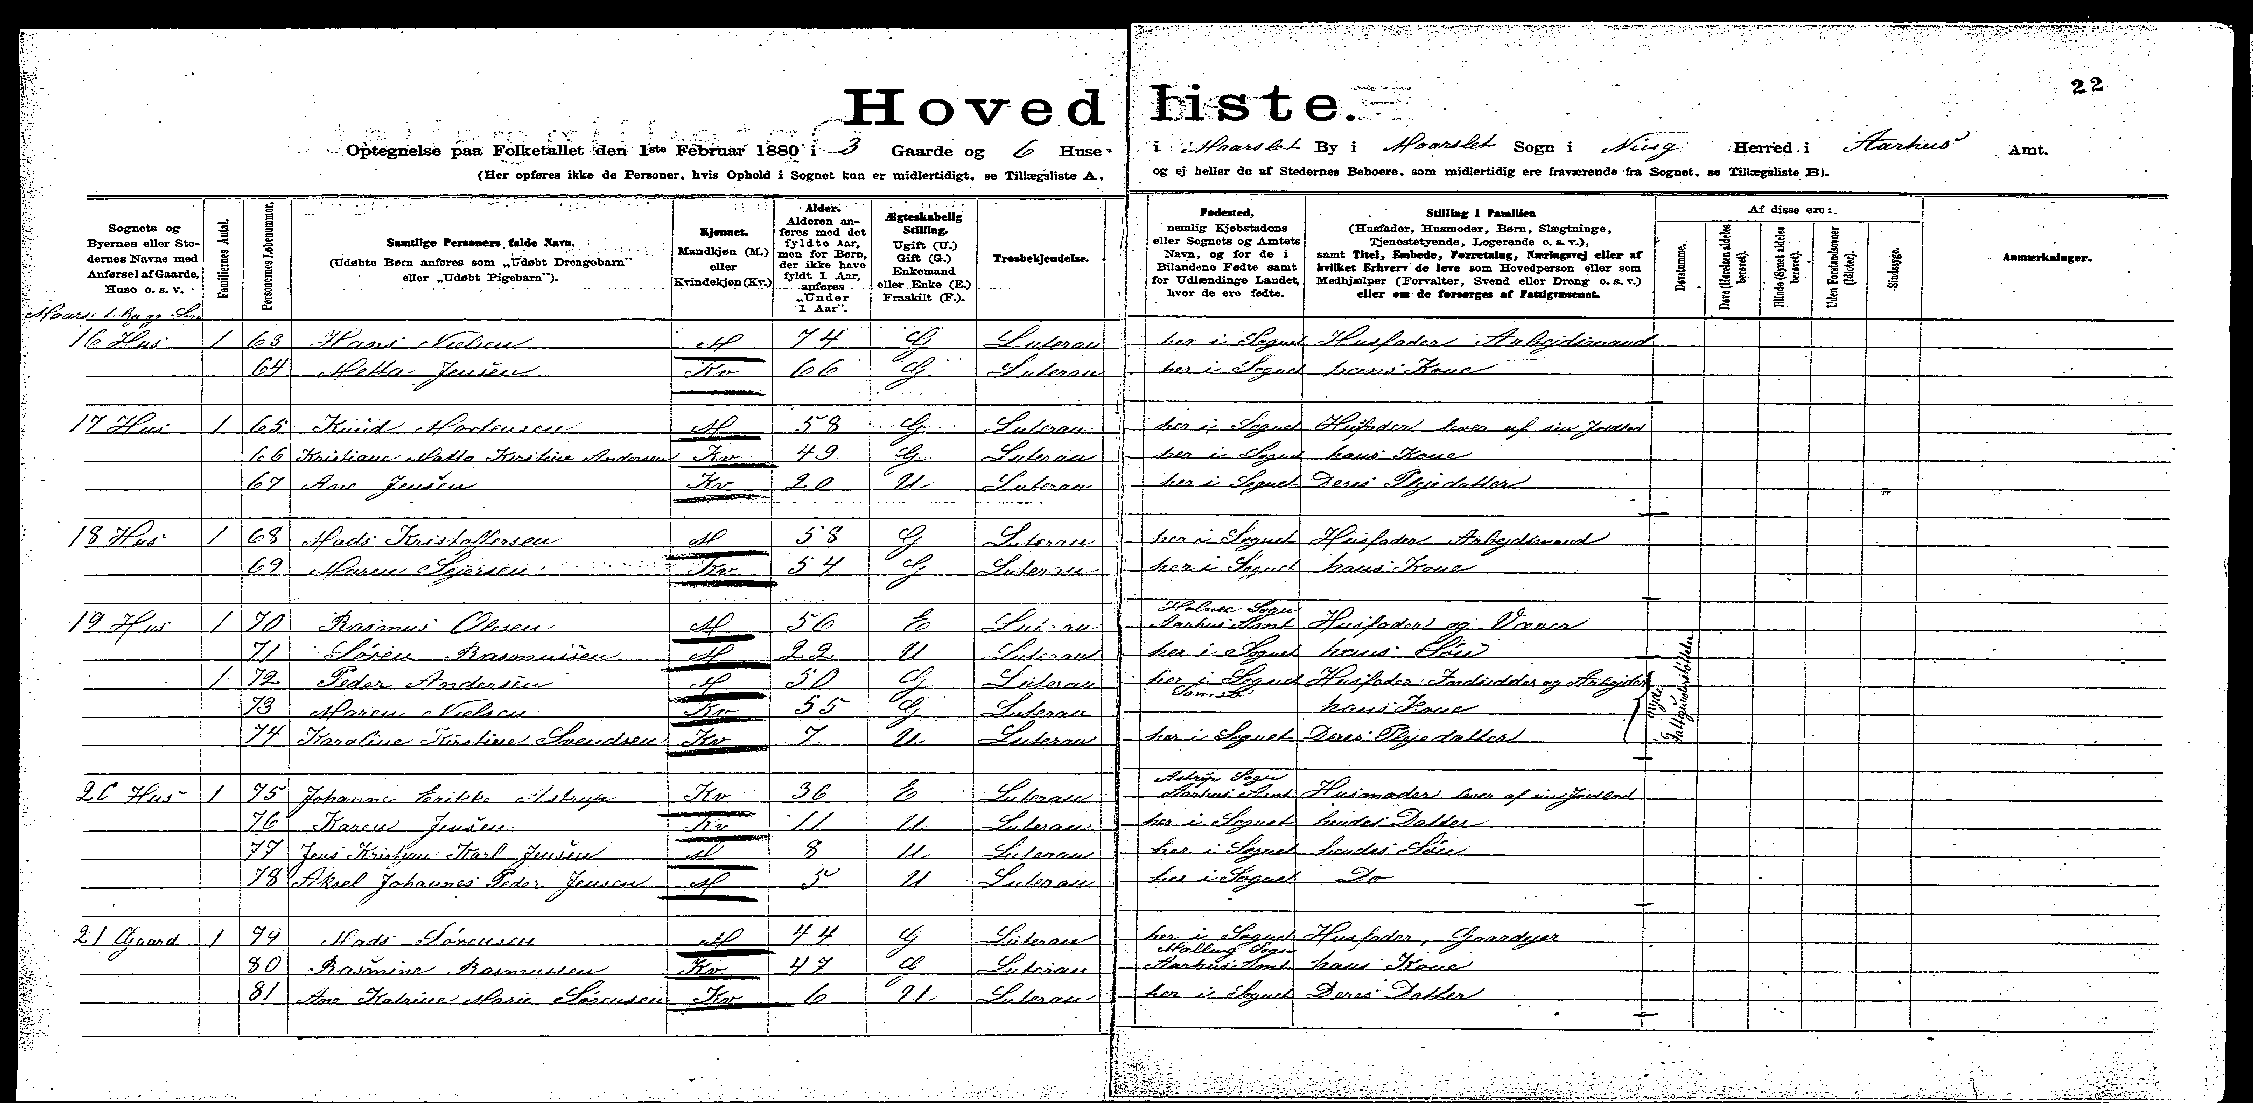 22
Hovedliste.
Optegnelse paa Folketallet den 1ste Februar 1880 i 3 Gaarde og 6 Huse i Maarslet By i Maarslet Sogn i Ning Herred i Aarhus Amt.
(Her opføres ikke de Personer, hvis Ophold i Sognet kun er midlertidigt, se Tillægsliste A, og ej heller de af Stedernes Beboere, som midlertidig ere fraværende fra Sognet, se Tillægsliste B).
Sognets og Byernes eller Stedernes Navne med Anførsel af Gaarde, Huse o. s. v.
Familiernes Antal.
Personernes Løbenummer.
Samtlige Personers fulde Navn.
(Udøbte Børn anføres som „Udøbt Drengebarn" eller „Udøbt Pigebarn").
Kjønnet.
Mandkjøn (M.) eller Kvindekjøn (Kv.)
Alder.
Alderen anføres med det fyldte Aar, men for Børn, der ikke have fyldt 1 Aar, anføres „Under 1 Aar".
Ægteskabelig Stilling.
Ugift (U.) Gift (G.) Enkemand eller Enke (E.) Fraskilt (F.).
Trosbekjendelse.
Fødested,
nemlig Kjøbstadens eller Sognets og Amtets Navn, og for de i Bilandene Fødte samt for Udlændinge Landet, hvor de ere fødte.
Stilling i Familien
(Husfader, Husmoder, Børn, Slægtninge, Tjenestetyende, Logerende o. s. v.),
samt Titel, Embede, Forretning, Næringsvej eller af hvilket Erhverv de leve som Hovedperson eller som Medhjælper (Forvalter, Svend eller Dreng o. s. v.) eller om de forsørges af Fattigvæsenet.
Af disse ere:
Døvstumme.
Døve (Hørelsen aldeles berøvet).
Blinde (Synet aldeles berøvet).
Uden Forstandsevner (Idioter).
Sindssyge.
Anmærkninger.
16 Hus 1 63 Hans Nielsen M 74 G Luteran her i Sognet Husfader Arbejdsmand
64 Mette Jensen Kv 66 G Luteran her i Sognet hans Kone
17 Hus 1 65 Knud Mortensen M 58 G Luteran her i Sognet Husfader lever af sin Jordlod
66 Kristiane Mette Kirstine Andersen Kv 49 G Luteran her i Sognet hans Kone
67 Ane Jensen Kv 20 U Luteran her i Sognet Deres Plejedatter
18 Hus 1 68 Mads Kristoffersen M 58 G Luteran her i Sognet Husfader Arbejdsmand
69 Maren Sejersen Kv 54 G Luteran her i Sognet hans Kone
19 Hus 1 70 Rasmus Olesen M 56 E Luteran Holme Sogn Aarhus Amt Husfader og Væver
71 Søren Rasmussen M 22 U Luteran her i Sognet hans Søn
1 72 Peder Andersen M 50 G Luteran her i Sognet Husfader Indsidder og Arbejder
73 Maren Nielsen Kv 55 G Luteran hans Kone
74 Karoline Kirstine Svendsen Kv 7 U Luteran her i Sognet Deres Plejedatter
nyde Fattigunderstøttelse
20 Hus 1 75 Johanne Astrup Kv 36 E Luteran Astrup Sogn Aarhus Amt Husmoder lever af sin Jordlod
76 Karen Jensen Kv 11 U Luteran her i Sognet hendes Datter
77 Jens Kristjan Karl Jensen M 8 U Luteran her i Sognet hendes Søn
78 Aksel Johannes Peder Jensen M 5 U Luteran her i Sognet Do
21 Gaard 1 79 Mads Sørensen M 44 G Luteran her i Sognet Husfader, Gaardejer
80 Rasmine Rasmussen Kv 47 G Luteran Malling Sogn Aarhus Amt hans Kone
81 Ane Katrine Marie Sørensen Kv 6 U Luteran her i Sognet Deres Datter